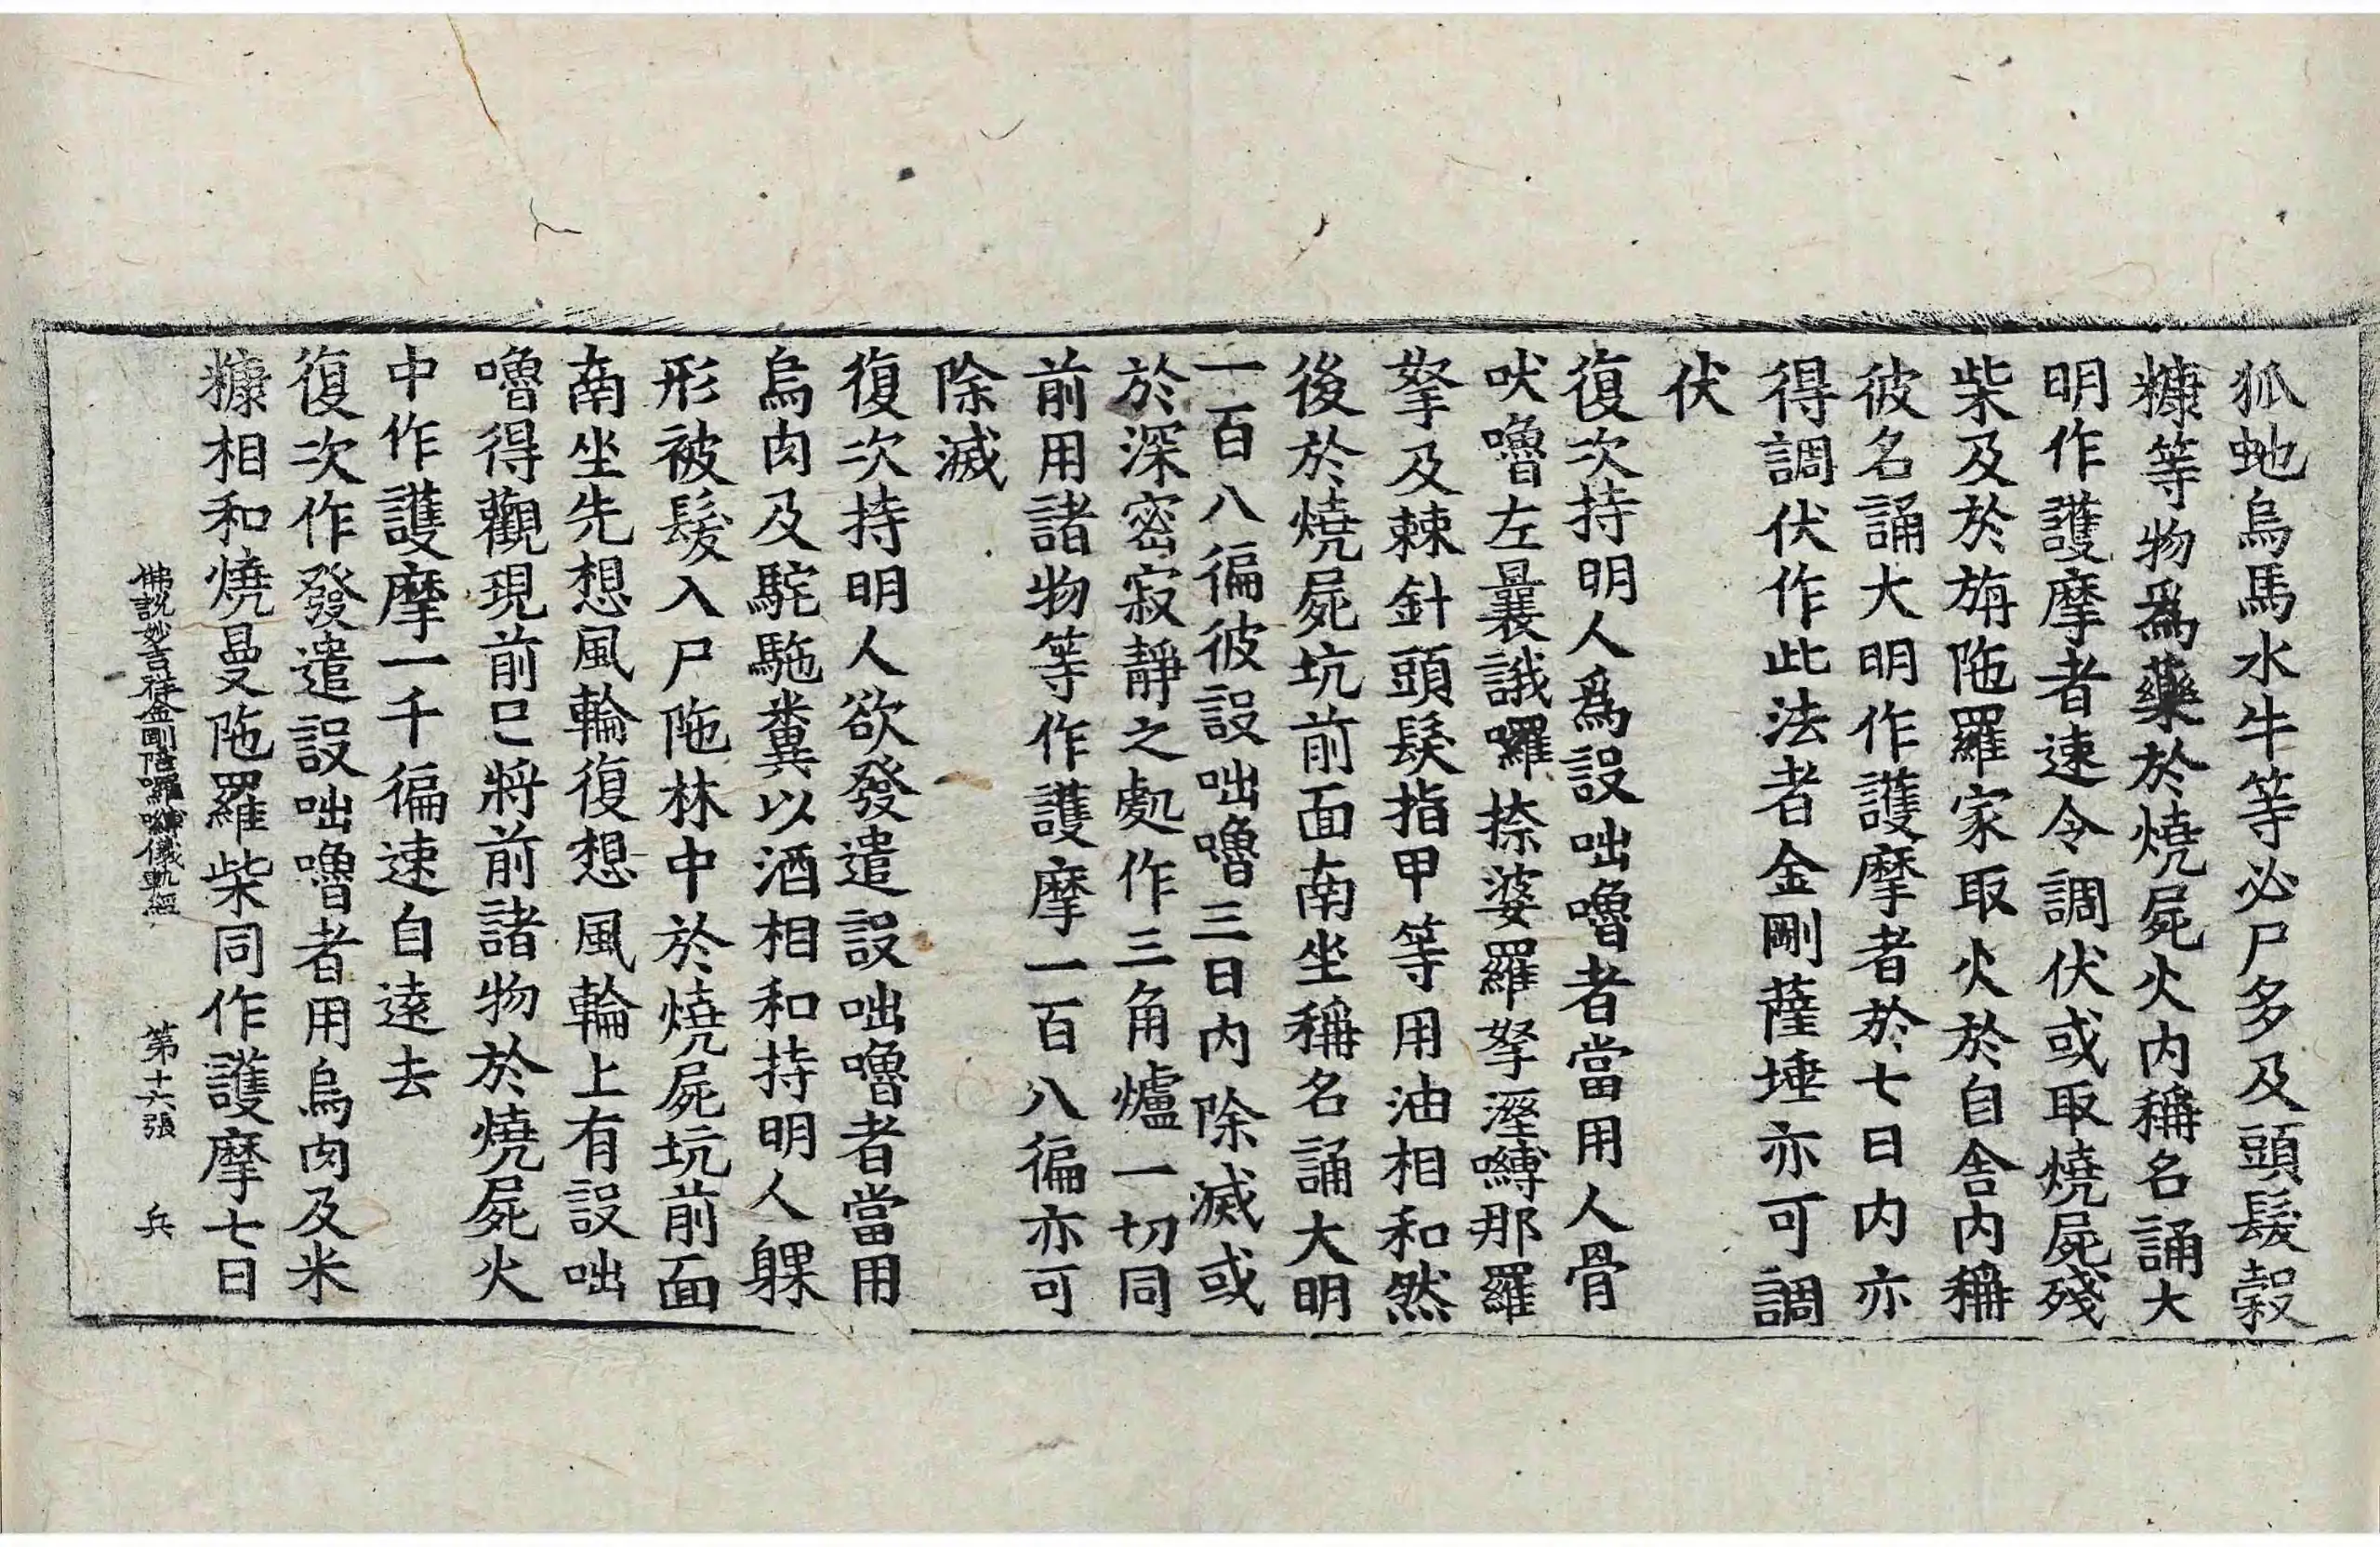 狐虵烏馬水牛等必尸多及頭髮穀
糠等物爲藥於燒屍火內稱名誦大
明作護摩者速令調伏或取燒屍殘
柴及於旃陁羅家取火於自舍內稱
彼名誦大明作護摩者於七日內亦
得調伏作此法者金剛薩埵亦可調
伏
復次持明人爲設咄嚕者當用人骨
吠嚕左曩誐囉捺婆羅拏溼嚩那羅
拏及棘針頭髮指甲等用油相和然
後於燒屍坑前面南坐稱名誦大明
一百八徧彼設咄嚕三日內除滅或
於深密寂靜之處作三角爐一切同
前用諸物等作護摩一百八徧亦可
除滅
復次持明人欲發遣設咄嚕者當用
烏肉及駝駞糞以酒相和持明人躶
形被髮入尸陁林中於燒屍坑前面
南坐先想風輪復想風輪上有設咄
嚕得觀現前已將前諸物於燒屍火
中作護摩一千徧速自遠去
復次作發遣設咄嚕者用烏肉及米
糠相和燒曼陁羅柴同作護摩七日
佛說妙吉祥金剛陪囉嚩儀軌經 第十六張 兵